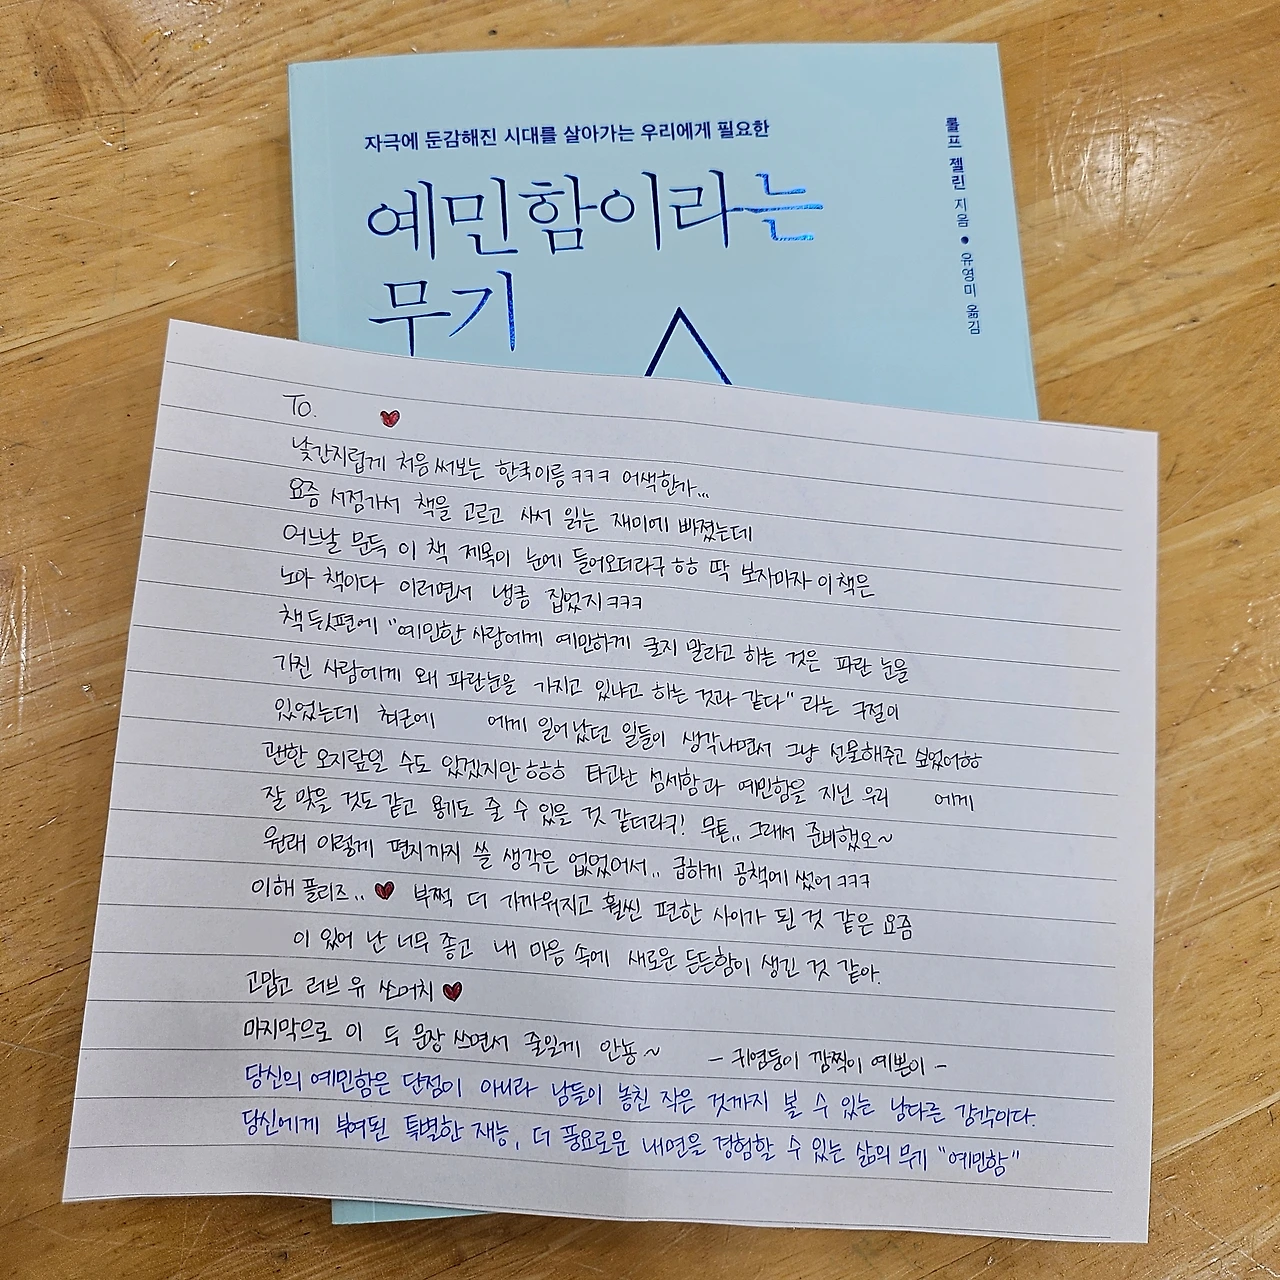 자극에 둔감해진 시대를 살아가는 우리에게 필요한
예민함이라는
무기
롤프 젤린 지음 • 유영미 옮김
To. ♥
낯간지럽게 처음 써보는 한국이름 ㅋㅋㅋ 어색한가...
요즘 서점가서 책을 고르고 사서 읽는 재미에 빠졌는데
어느날 문득 이 책 제목이 눈에 들어오더라구 ㅎㅎ 딱 보자마자 이 책은
노아 책이다 이러면서 냉큼 집었지 ㅋㅋㅋ
책 뒷편에 "예민한 사람에게 예민하게 굴지 말라고 하는 것은 파란 눈을
가진 사람에게 왜 파란눈을 가지고 있냐고 하는 것과 같다" 라는 구절이
있었는데 최근에 에게 일어났던 일들이 생각나면서 그냥 선물해주고 싶었어ㅎㅎ
괜한 오지랖일 수도 있겠지만 ㅎㅎㅎ 타고난 섬세함과 예민함을 지닌 우리 에게
잘 맞을 것도 같고 용기도 줄 수 있을 것 같더라구! 무튼.. 그래서 준비했오~
원래 이렇게 편지까지 쓸 생각은 없었어서.. 급하게 공책에 썼어 ㅋㅋㅋ
이해 플리즈.. ♥ 부쩍 더 가까워지고 훨씬 편한 사이가 된 것 같은 요즘
이 있어 난 너무 좋고 내 마음 속에 새로운 든든함이 생긴 것 같아.
고맙고 러브 유 쏘머치 ♥
마지막으로 이 두 문장 쓰면서 줄일게 안뇽~ - 귀염둥이 깜찍이 예쁜이 -
당신의 예민함은 단점이 아니라 남들이 놓친 작은 것까지 볼 수 있는 남다른 감각이다.
당신에게 부여된 특별한 재능, 더 풍요로운 내면을 경험할 수 있는 삶의 무기 "예민함"